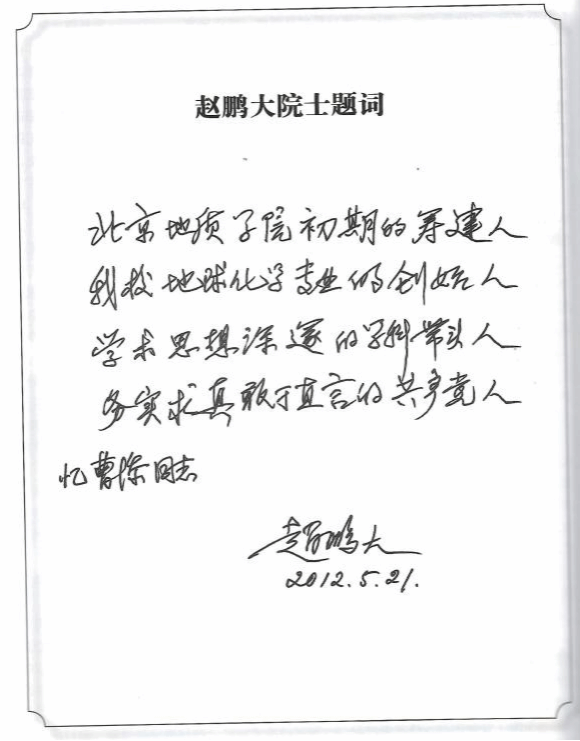 赵鹏大院士题词
北京地质学院初期的筹建人
我校地球化学专业的创始人
学术思想深邃的学科带头人
务实求真敢于直言的共产党人
忆曹添同志
赵鹏大
2012.5.21.